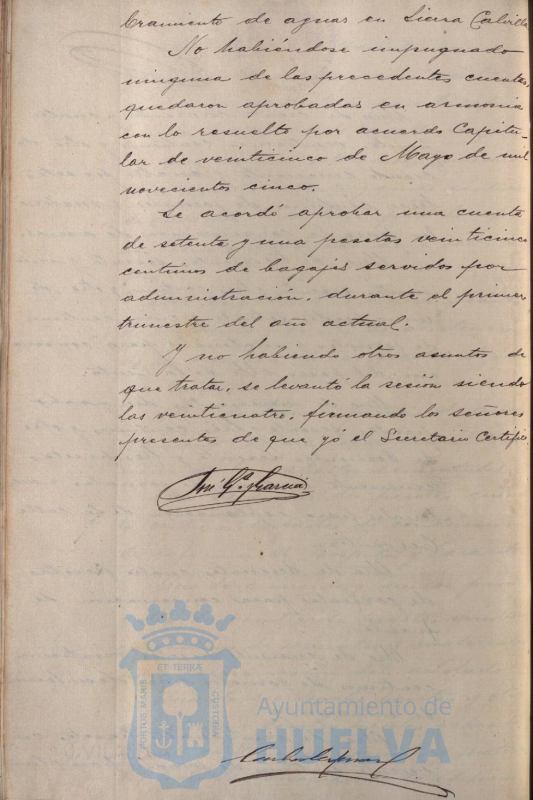 bramiento de aguas en Sierra Calvilla
No habiéndose impugnado
ninguna de las precedentes cuentas,
quedaron aprobadas en armonia
con lo resuelto por acuerdo Capitu-
lar de veinticinco de Mayo de mil
novecientos cinco.
Se acordó aprobar una cuenta
de setenta y una pesetas veinticinco
centimos de bagajes servidos por
administración, durante el primer
trimestre del año actual.
Y no habiendo otros asuntos de
que tratar, se levantó la sesión siendo
las veinticuatro, firmando los señores
presentes de que yó el Secretario Certifico
José Gª y Garcia
ET TERRÆ
PORTUS MARIS
CUSTODIA
Ayuntamiento de
HUELVA